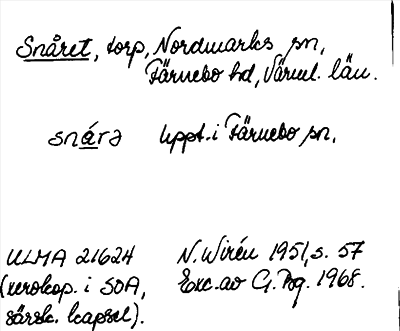 Snåret, torp, Nordmarks sn,
Färnebo hd, Värml. län.
snárə uppt. i Färnebo sn,
ULMA 21624 N. Wirén 1951, s. 57
(xerokop. i SOA, Exc. av G. Pog. 1968.
särsk. kapsel).